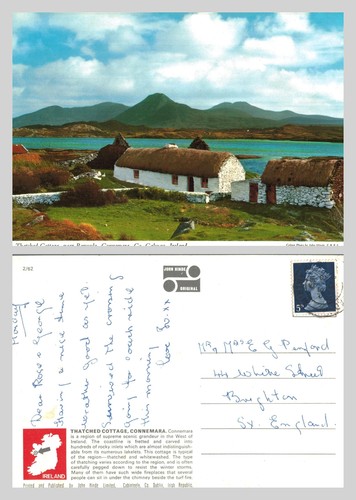 Thatched Cottage, near Renvyle, Connemara, Co. Galway, Ireland
2/62
JOHN HINDE
ORIGINAL
Monday
Dear Rose & George
Having a nice time
weather good as yet.
Survived the crossing
going for coach ride
this morning
love
5p
44 White Street
Brighton
SX. England.
THATCHED COTTAGE, CONNEMARA. Connemara
is a region of supreme scenic grandeur in the West of
Ireland. The coastline is fretted and carved into
hundreds of rocky inlets which are almost indistinguish-
able from its numerous lakelets. This cottage is typical
of the region—thatched and whitewashed. The type
of thatching varies according to the region, and is often
carefully pegged down to resist the winter storms.
Many of them have such wide fireplaces that six
people can sit under the chimney beside the turf fire.
IRELAND
Printed and Published by John Hinde Limited, Cabinteely, Co. Dublin, Irish Republic.